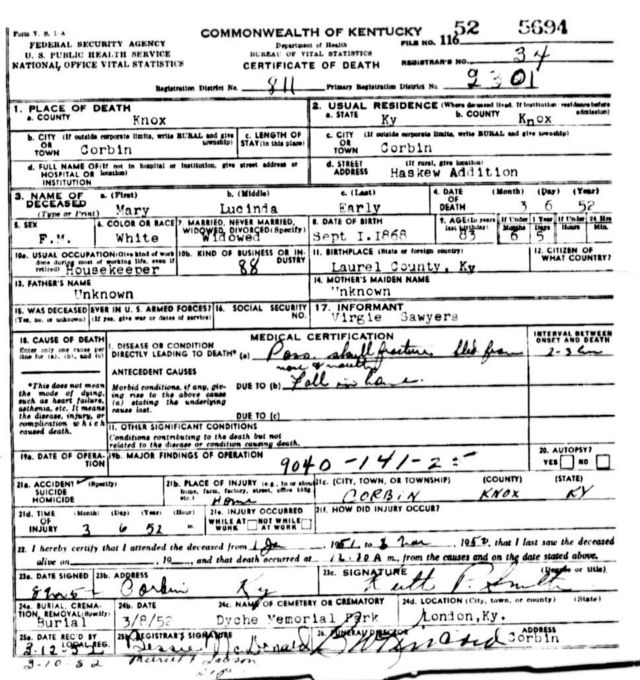 Form V. S. 1-A
COMMONWEALTH OF KENTUCKY
52 5694
FEDERAL SECURITY AGENCY
U. S. PUBLIC HEALTH SERVICE
NATIONAL OFFICE VITAL STATISTICS
Department of Health
BUREAU OF VITAL STATISTICS
CERTIFICATE OF DEATH
FILE NO. 116
REGISTRAR'S NO. 34
Registration District No. 811 Primary Registration District No. 2301
1. PLACE OF DEATH
a. COUNTY Knox
2. USUAL RESIDENCE (Where deceased lived. If institution: residence before admission)
a. STATE Ky b. COUNTY Knox
b. CITY (If outside corporate limits, write RURAL and give township) OR TOWN Corbin
c. LENGTH OF STAY (in this place)
c. CITY (If outside corporate limits, write RURAL and give township) OR TOWN Corbin
d. FULL NAME OF (If not in hospital or institution, give street address or location) HOSPITAL OR INSTITUTION
d. STREET ADDRESS (If rural, give location) Haskew Addition
3. NAME OF DECEASED (Type or Print)
a. (First) Mary
b. (Middle) Lucinda
c. (Last) Early
4. DATE OF DEATH (Month) (Day) (Year) 3 6 52
5. SEX F.M.
6. COLOR OR RACE White
7. MARRIED, NEVER MARRIED, WIDOWED, DIVORCED (Specify) Widowed
8. DATE OF BIRTH Sept I.1868
9. AGE (In years last birthday) 83 If Under 1 Year Months 6 Days 5 If Under 24 Hrs Hours Min.
10a. USUAL OCCUPATION (Give kind of work done during most of working life, even if retired) Housekeeper
10b. KIND OF BUSINESS OR INDUSTRY 88
11. BIRTHPLACE (State or foreign country) Laurel County, Ky
12. CITIZEN OF WHAT COUNTRY?
13. FATHER'S NAME Unknown
14. MOTHER'S MAIDEN NAME Unknown
15. WAS DECEASED EVER IN U. S. ARMED FORCES? (Yes, no, or unknown) (If yes, give war or dates of service)
16. SOCIAL SECURITY NO.
17. INFORMANT Virgie Sawyers
18. CAUSE OF DEATH
Enter only one cause per line for (a), (b), and (c)
MEDICAL CERTIFICATION
INTERVAL BETWEEN ONSET AND DEATH
I. DISEASE OR CONDITION DIRECTLY LEADING TO DEATH* (a) Poss. skull fracture bled from nose & mouth
2-3 hr
*This does not mean the mode of dying, such as heart failure, asthenia, etc. It means the disease, injury, or complication which caused death.
ANTECEDENT CAUSES
Morbid conditions, if any, giving rise to the above cause (a) stating the underlying cause last.
DUE TO (b) Fall in home.
DUE TO (c)
II. OTHER SIGNIFICANT CONDITIONS
Conditions contributing to the death but not related to the disease or condition causing death.
19a. DATE OF OPERATION
19b. MAJOR FINDINGS OF OPERATION
9040-141-25
20. AUTOPSY? YES NO
21a. ACCIDENT (Specify) SUICIDE HOMICIDE
21b. PLACE OF INJURY (e.g., in or about home, farm, factory, street, office bldg etc.) Home
21c. (CITY, TOWN, OR TOWNSHIP) (COUNTY) (STATE)
CORBIN KNOX KY
21d. TIME OF INJURY (Month) (Day) (Year) (Hour) 3 6 52
21e. INJURY OCCURRED WHILE AT WORK NOT WHILE AT WORK
21f. HOW DID INJURY OCCUR?
22. I hereby certify that I attended the deceased from 1 Ja 1951 to 8 Mar 1952, that I last saw the deceased
alive on , 19 , and that death occurred at 12:30 A m., from the causes and on the date stated above.
23a. DATE SIGNED
23b. ADDRESS Corbin Ky
23c. SIGNATURE (Degree or title) Keith P. Smith
24a. BURIAL, CREMATION, REMOVAL (Specify) Burial
24b. DATE 3/8/52
24c. NAME OF CEMETERY OR CREMATORY Dyche Memorial Park
24d. LOCATION (City, town, or county) (State) London, Ky.
25a. DATE REC'D BY LOCAL REG. 3-12-52
3-10-52
25b. REGISTRAR'S SIGNATURE Jessie McDonald
26. FUNERAL DIRECTOR
ADDRESS Corbin